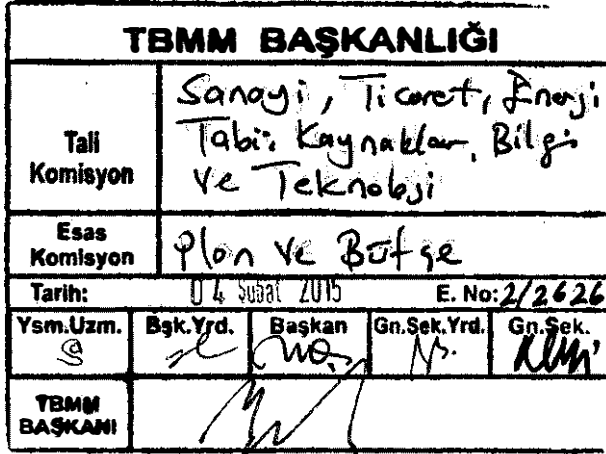 TBMM BAŞKANLIĞI
Tali Komisyon
Sanayi, Ticaret, Enerji
Tabii Kaynaklar, Bilgi
ve Teknoloji
Esas Komisyon
Plan ve Bütçe
Tarih: 04 Şubat 2015 E. No: 2/2626
Ysm.Uzm. Bşk.Yrd. Başkan Gn.Sek.Yrd. Gn.Sek.
TBMM
BAŞKANI